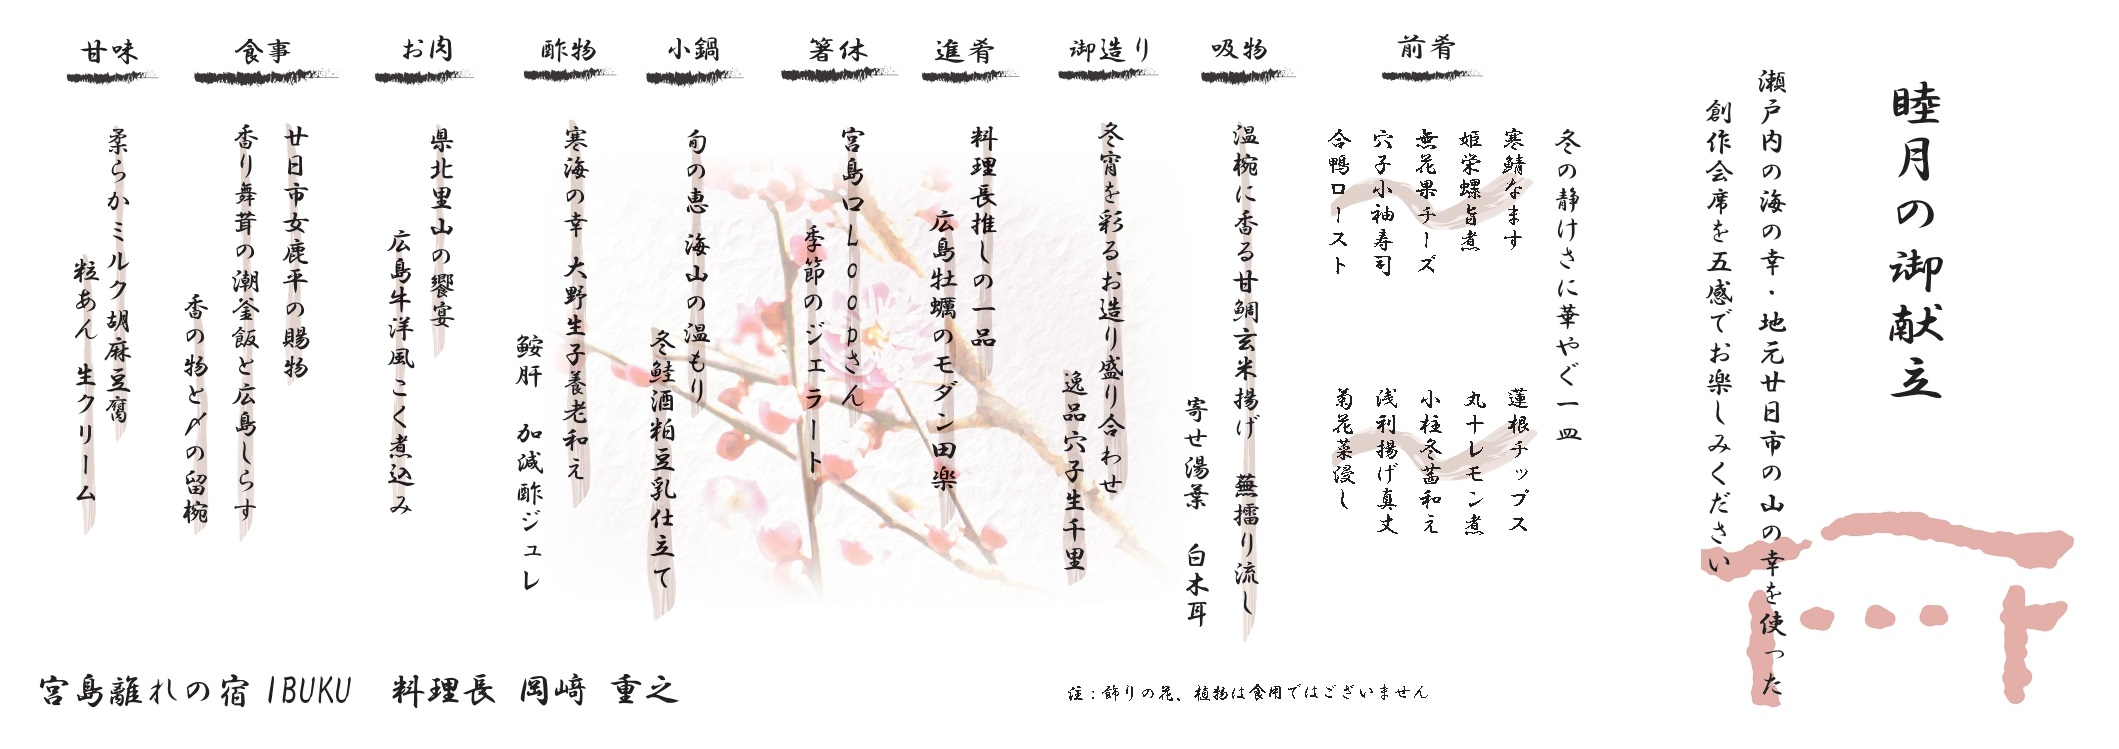 睦月の御献立
瀬戸内の海の幸・地元廿日市の山の幸を使った
創作会席を五感でお楽しみください
前肴
冬の静けさに華やぐ一皿
寒鯖なます
姫栄螺旨煮
無花果チーズ
穴子小袖寿司
合鴨ロースト
蓮根チップス
丸十レモン煮
小柱冬葱和え
浅利揚げ真丈
菊花菜浸し
吸物
温椀に香る甘鯛玄米揚げ 蕪擂り流し
寄せ湯葉 白木耳
御造り
冬宵を彩るお造り盛り合わせ
逸品穴子生千里
進肴
料理長推しの一品
広島牡蠣のモダン田楽
箸休
宮島口Looopさん
季節のジェラート
小鍋
旬の恵 海山の温もり
冬鮭酒粕豆乳仕立て
酢物
寒海の幸 大野生子養老和え
鮟肝 加減酢ジュレ
お肉
県北里山の饗宴
広島牛洋風こく煮込み
食事
廿日市女鹿平の賜物
香り舞茸の潮釜飯と広島しらす
香の物と〆の留椀
甘味
柔らかミルク胡麻豆腐
粒あん 生クリーム
注:飾りの花、植物は食用ではございません
宮島離れの宿 IBUKU 料理長 岡﨑 重之